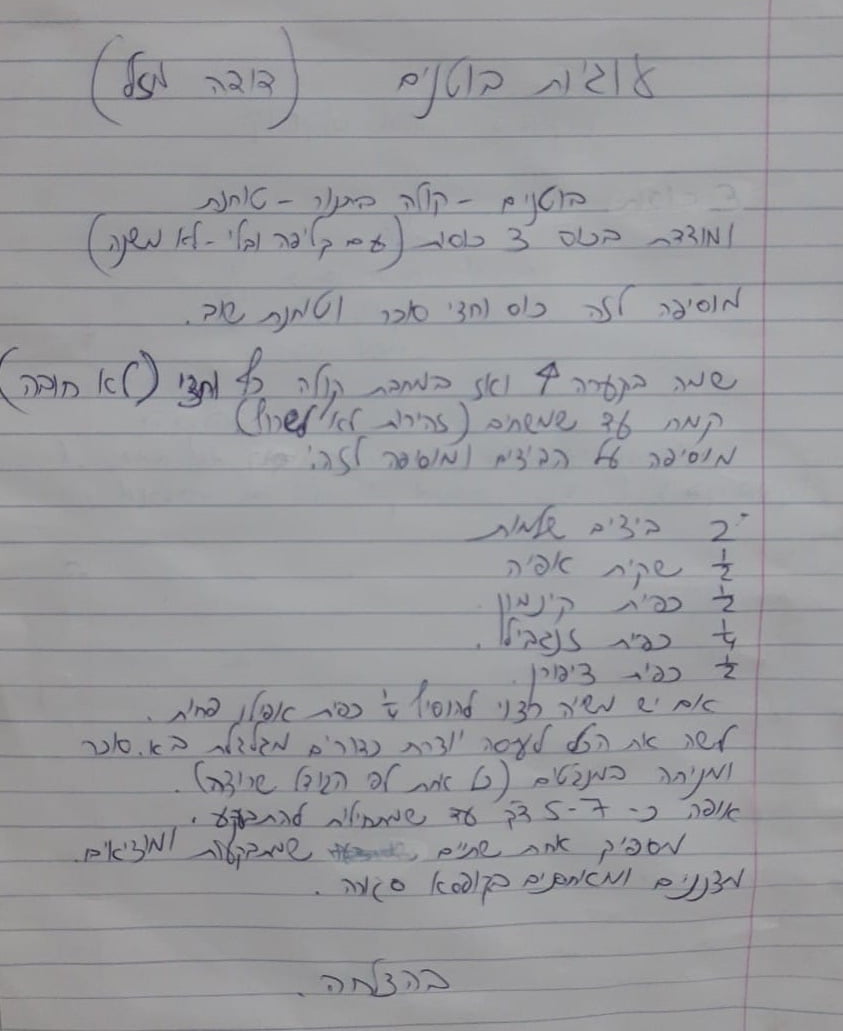 עוגיות בוטנים (דודה מזל)
בוטנים - קולה בתנור - טוחנת
ומודדת בכוס 3 כוסות (עם קליפה ובלי - לא משנה)
מוסיפה לזה כוס וחצי סוכר וטוחנת שוב.
שמה בקערה ואז במחבת קולה כף וחצי (לא חובה)
קמח עד שמשחים (זהירות לא לשרוף)
מוסיפה על הביצים ומוסיפה לזה:
2 ביצים שלמות
½ שקית אפיה
½ כפית קינמון
¼ כפית זנגביל.
½ כפית ציפורן.
אם יש משיה רצוי להוסיף ½ כפית אפילו פחות.
לשה את הכל לעסה יוצרת כדורים מגלגלת בא.סוכר
ומניחה במנג'טים (כל אחת לפי הגודל שרוצה).
אופה כ- 5-7 דק' עד שמתחילות להתבקע.
מספיק אחת שתיים שמתבקעות ומוציאים.
מצננים ומאחסנים בקופסא סגורה.
בהצלחה.